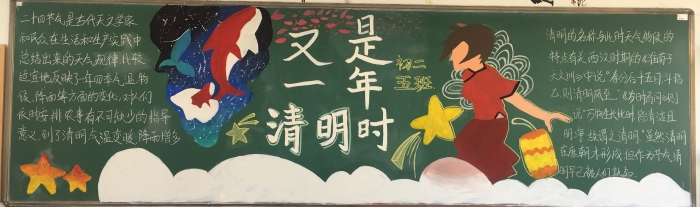 二十四节气是古代天文学家
和民众在生活和生产实践中
总结出来的天气规律,比较
适宜地反映了一年四季气温、物
候、降雨等方面的变化,对人们
依时安排农事有不可缺少的指导
意义,到了清明气温变暖,降雨增多
又一
是年
清明时
初二
五班
清明的名称与此时天气物候的
特点有关,西汉时期的《淮南子·
天文训》中说:"春分后十五日,斗指
乙,则清明风至。"《岁时百问》则
说"万物生长此时,皆清洁且
明净,故谓之清明"虽然清明
在唐朝才形成,但作为节气清
明早已被人们熟知。